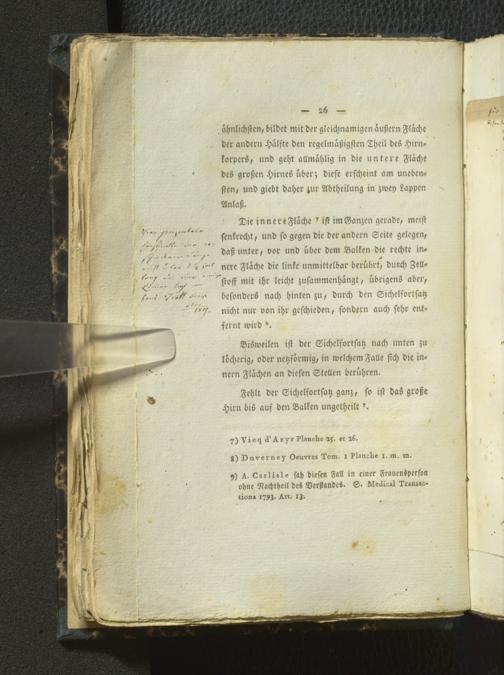 — 26 —
ähnlichsten, bildet mit der gleichnamigen äußern Fläche
der andern Hälfte den regelmäßigsten Theil des Hirn-
korpers, und geht allmählig in die untere Fläche
des großen Hirnes über; diese erscheint am uneben-
sten, und giebt daher zur Abtheilung in zwey Lappen
Anlaß.
Die innere Fläche ⁷ ist im Ganzen gerade, meist
senkrecht, und so gegen die der andern Seite gelegen,
daß unter, vor und über dem Balken die rechte in-
nere Fläche die linke unmittelbar berührt, durch Zell-
stoff mit ihr leicht zusammenhängt, übrigens aber,
besonders nach hinten zu, durch den Sichelfortsatz
nicht nur von ihr geschieden, sondern auch sehr ent-
fernt wird ⁸.
Bisweilen ist der Sichelfortsatz nach unten zu
löcherig, oder netzförmig, in welchem Falle sich die in-
nern Flächen an diesen Stellen berühren.
Fehlt der Sichelfortsatz ganz, so ist das große
Hirn bis auf den Balken ungetheilt ⁹.
7) Vicq d'Azyr Planche 25. et 26.
8) Duverney Oeuvres Tom. 1 Planche 1. m. m.
9) A. Carlisle sah diesen Fall in einer Frauensperson
ohne Nachtheil des Verstandes. S. Medical Transac-
tions 1793. Art. 13.